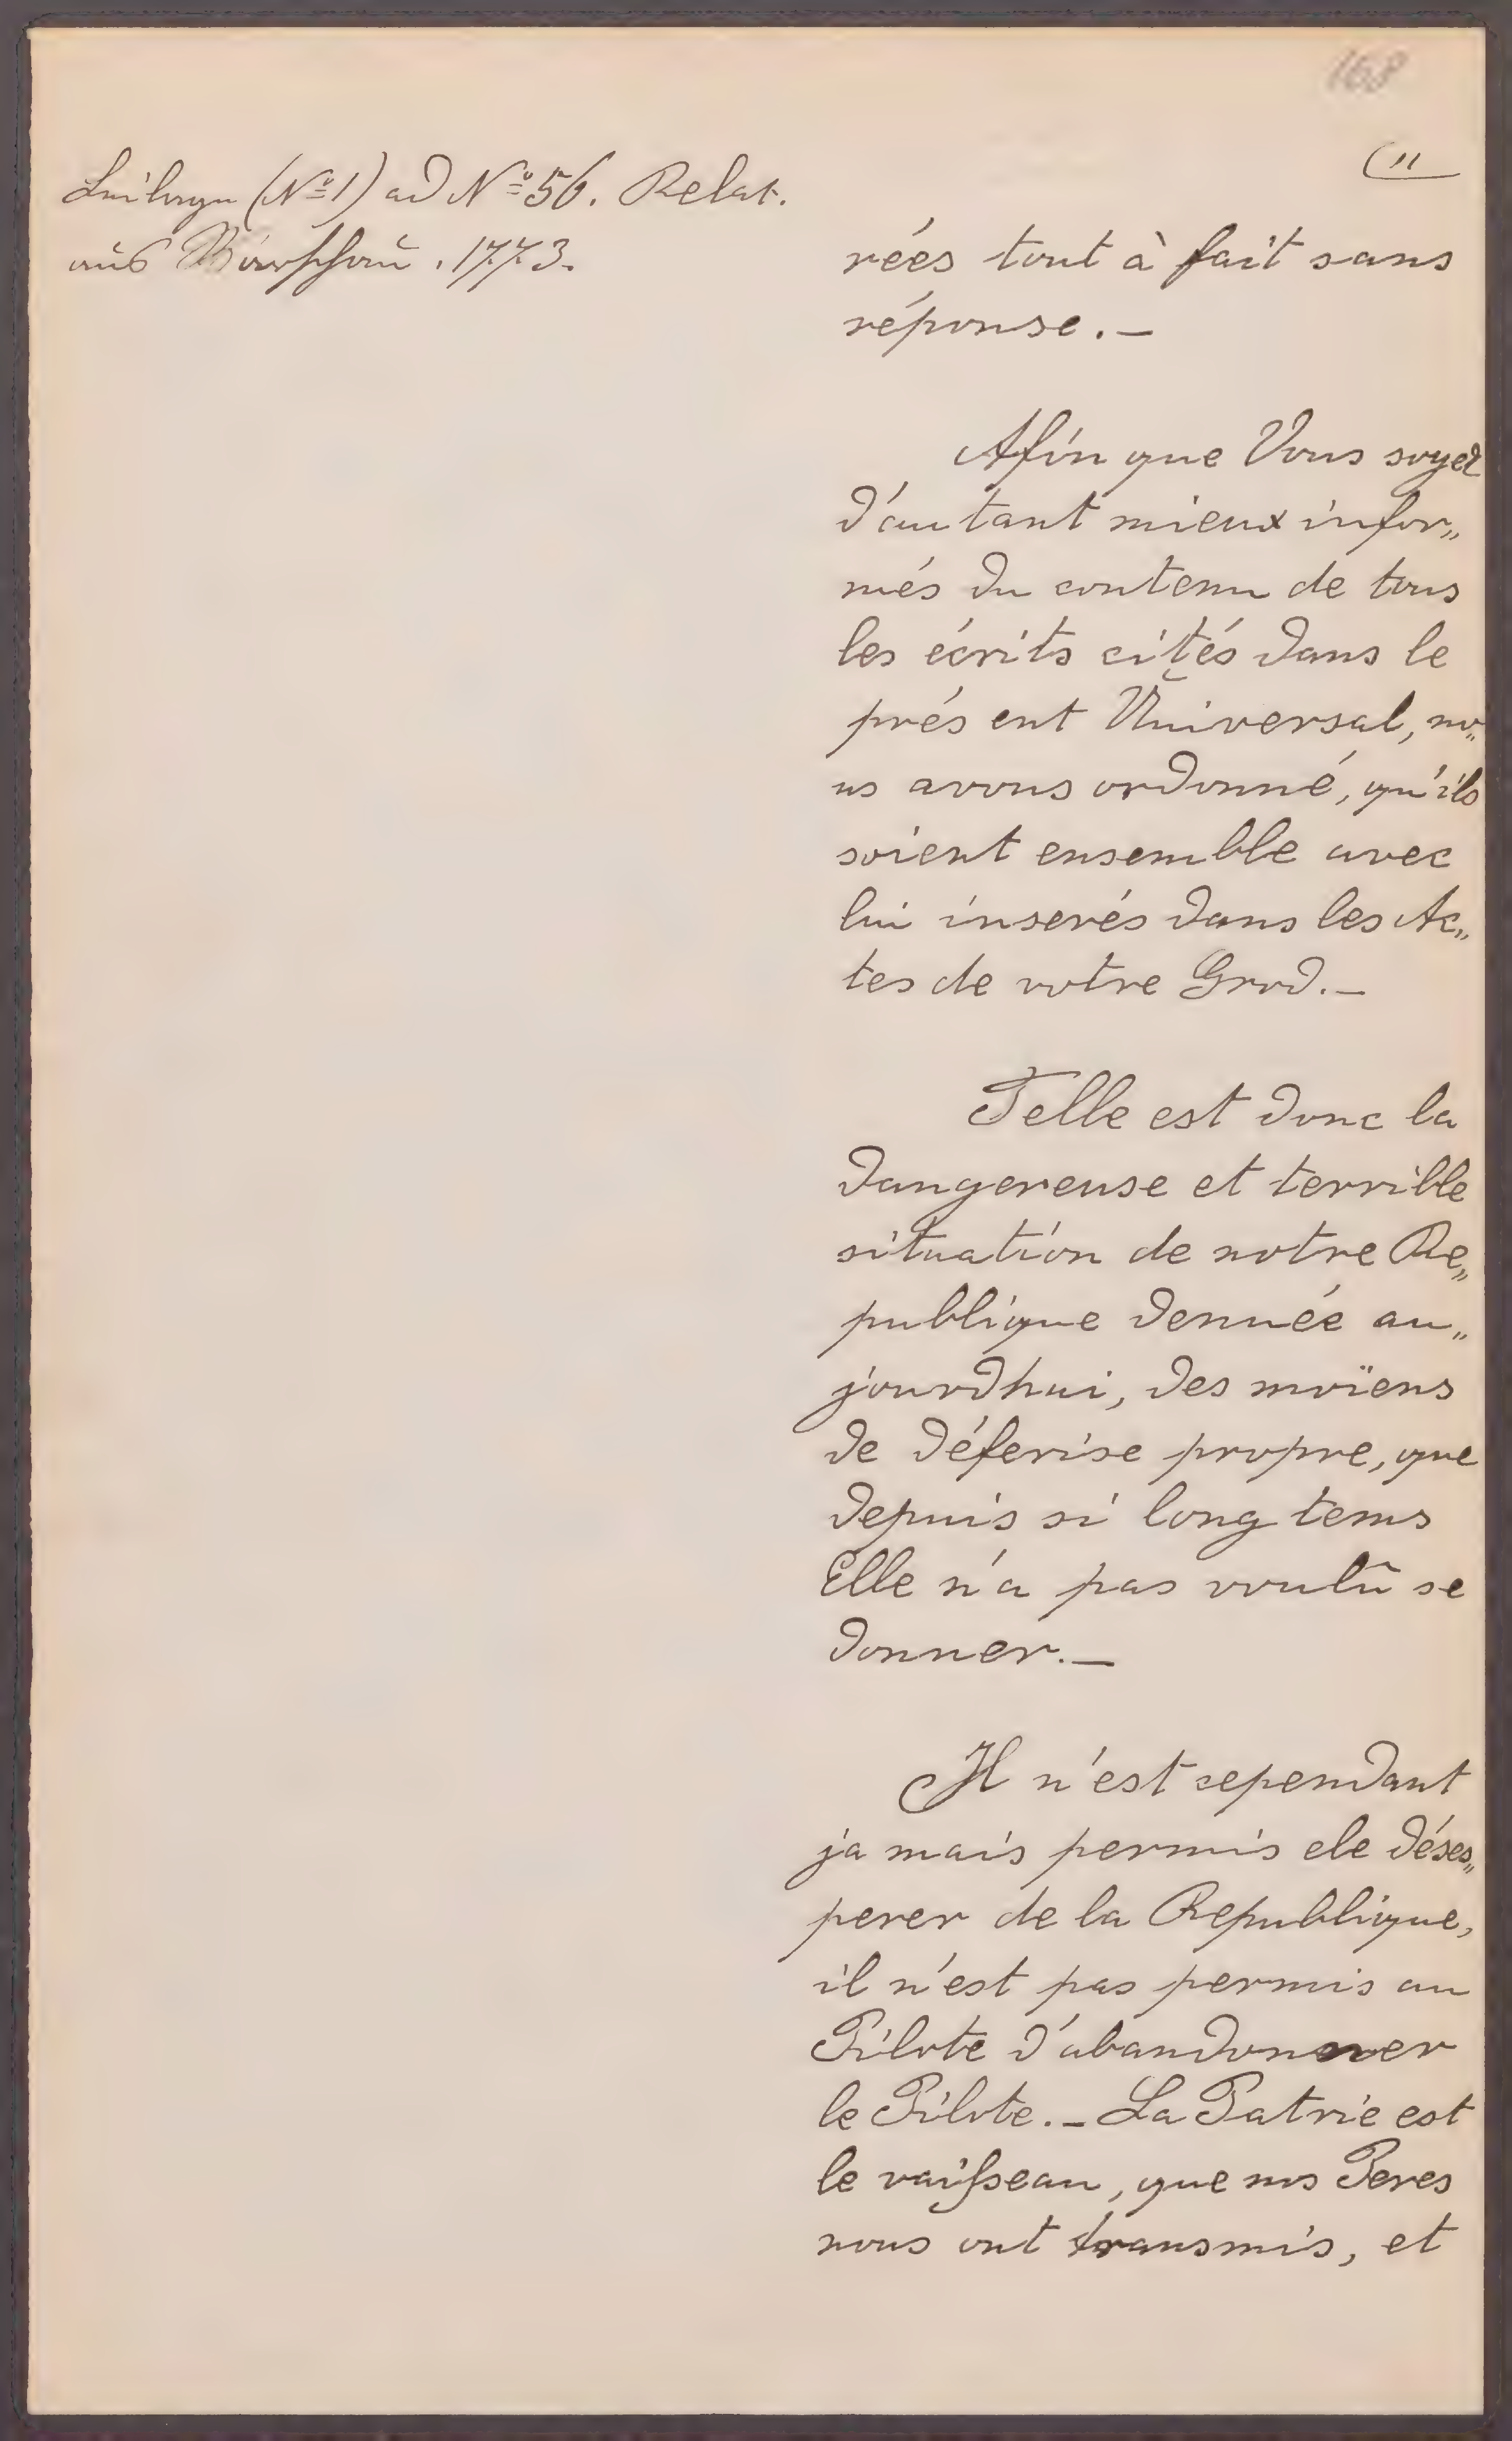 168
(11
Beilage (Nº 1) ad Nº 56. Relat.
aus Warschau. 1773.
rées tout à fait sans
réponse.—
Afin que Vous soyez
d'autant mieux infor„
més du contenu de tous
les écrits cités dans le
prés ent Universal, no„
us avons ordonné, qu'ils
soient ensemble avec
lui inserés dans les Ac„
tes de votre Grod.—
Telle est donc la
dangereuse et terrible
situation de notre Re„
publique denuée au„
jourdhui, des moïens
de déferise propre, que
depuis si long tems
Elle n'a pas voulû se
donner.—
Il n'est cependant
ja mais permis ele déses„
perer de la Republique,
il n'est pas permis au
Pilote d'abandonner
le Pilote.— La Patrie est
le vaiſseau, que nos Peres
nous ont transmis, et